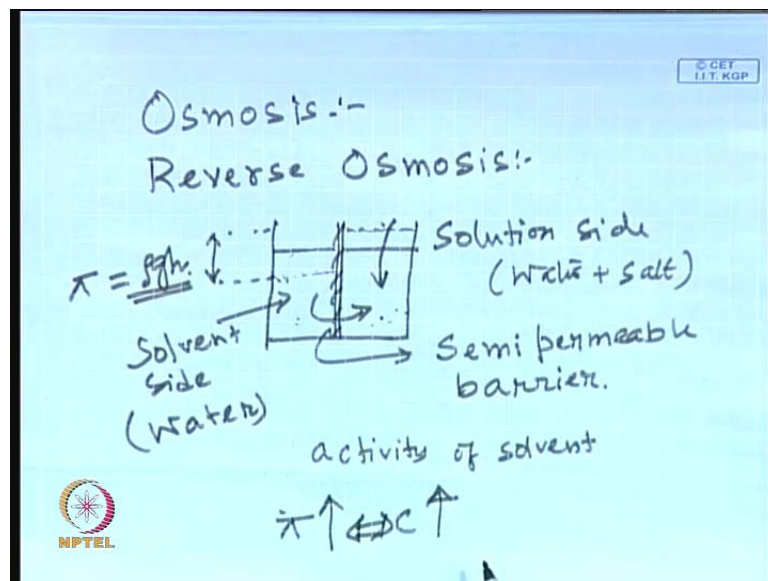 © CET
I.I.T. KGP
Osmosis:-
Reverse Osmosis:-
π = ρgh.
Solution side
(Water + Salt)
Solvent
side
(Water)
Semi permeable
barrier.
activity of solvent
π ↑ ⇔ C ↑
NPTEL